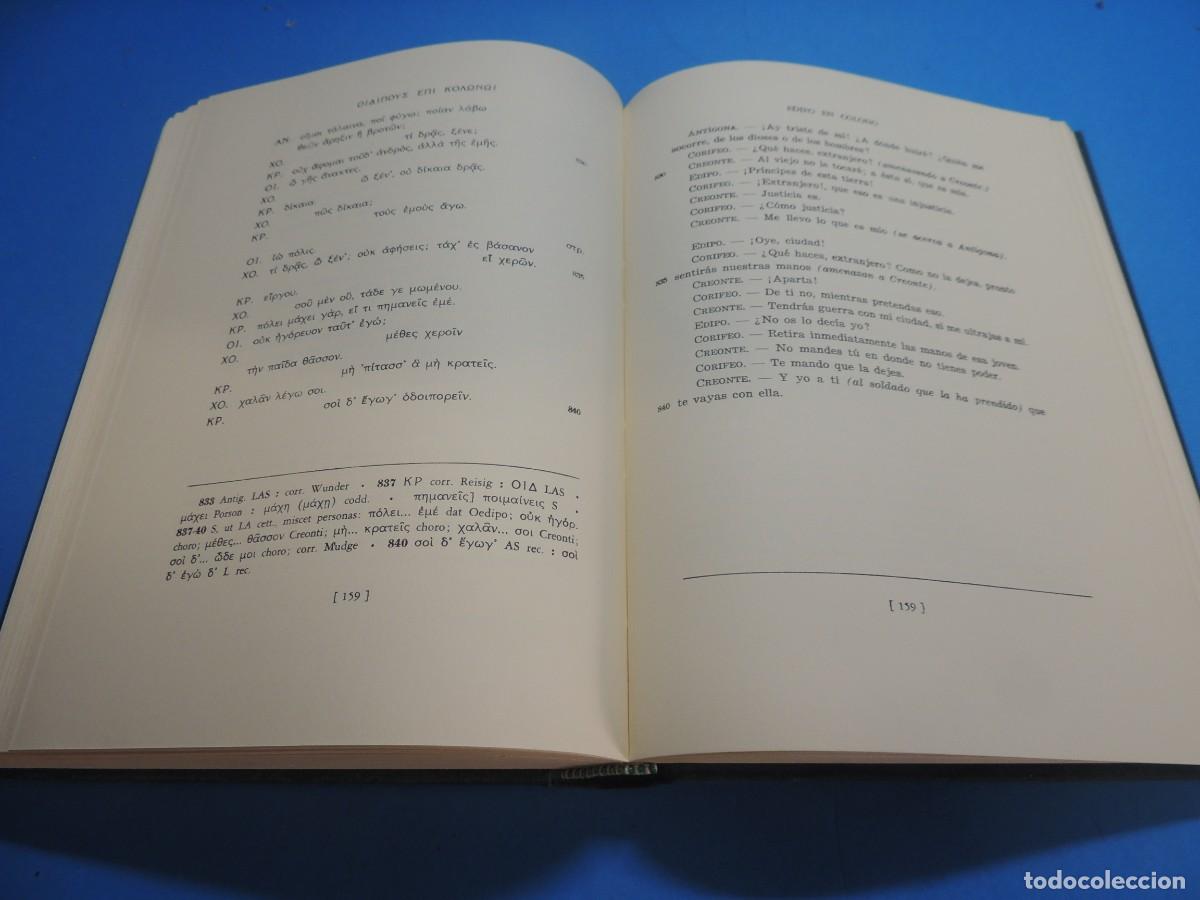 ΟΙΔΙΠΟΥΣ ΕΠΙ ΚΟΛΩΝΩΙ
ΑΝ. οἴμοι τάλαινα, ποῖ φύγω; ποίαν λάβω
θεῶν ἄρηξιν ἢ βροτῶν;
ΧΟ. τί δρᾷς, ξένε;
ΚΡ. οὐχ ἅψομαι τοῦδ' ἀνδρός, ἀλλὰ τῆς ἐμῆς. 830
ΟΙ. ὦ γῆς ἄνακτες.
ΧΟ. ὦ ξέν', οὐ δίκαια δρᾷς.
ΚΡ. δίκαια.
ΧΟ. πῶς δίκαια;
ΚΡ. τοὺς ἐμοὺς ἄγω.
ΟΙ. ἰὼ πόλις. στρ.
ΧΟ. τί δρᾷς, ὦ ξέν'; οὐκ ἀφήσεις; τάχ' ἐς βάσανον
εἶ χερῶν. 835
ΚΡ. εἴργου.
ΧΟ. σοῦ μὲν οὔ, τάδε γε μωμένου.
ΚΡ. πόλει μάχει γάρ, εἴ τι πημανεῖς ἐμέ.
ΟΙ. οὐκ ἠγόρευον ταῦτ' ἐγώ;
ΧΟ. μέθες χεροῖν
τὴν παῖδα θᾶσσον.
ΚΡ. μὴ 'πίτασσ' ἃ μὴ κρατεῖς.
ΧΟ. χαλᾶν λέγω σοι.
ΚΡ. σοὶ δ' ἔγωγ' ὁδοιπορεῖν. 840
833 Antig. LAS : corr. Wunder • 837 ΚΡ corr. Reisig : ΟΙΔ LAS •
μάχει Porson : μάχη (μάχῃ) codd. • πημανεῖς] ποιμαίνεις S •
837-40 S, ut LA cett., miscet personas: πόλει... ἐμέ dat Oedipo; οὐκ ἠγόρ.
choro; μέθες... θᾶσσον Creonti; μὴ... κρατεῖς choro; χαλᾶν... σοι Creonti;
σοὶ δ'... ὧδέ μοι choro; corr. Mudge • 840 σοὶ δ' ἔγωγ' AS rec. : σοὶ
δ' ἐγὼ δ' L rec.
[ 159 ]
EDIPO EN COLONO
ANTÍGONA. — ¡Ay triste de mí! ¿A dónde huiré? ¿Quién me
socorre, de los dioses o de los hombres?
CORIFEO. — ¿Qué haces, extranjero? (amenazando a Creonte.)
830 CREONTE. — Al viejo no le tocaré; a ésta sí, que es mía.
EDIPO. — ¡Príncipes de esta tierra!
CORIFEO. — ¡Extranjero!, que eso es una injusticia.
CREONTE. — Justicia es.
CORIFEO. — ¿Cómo justicia?
CREONTE. — Me llevo lo que es mío (se acerca a Antígona).
EDIPO. — ¡Oye, ciudad!
CORIFEO. — ¿Qué haces, extranjero? Como no la dejes, pronto
835 sentirás nuestras manos (amenazan a Creonte).
CREONTE. — ¡Aparta!
CORIFEO. — De ti no, mientras pretendas eso.
CREONTE. — Tendrás guerra con mi ciudad, si me ultrajas a mí.
EDIPO. — ¿No os lo decía yo?
CORIFEO. — Retira inmediatamente las manos de esa joven.
CREONTE. — No mandes tú en donde no tienes poder.
CORIFEO. — Te mando que la dejes.
CREONTE. — Y yo a ti (al soldado que la ha prendido) que
840 te vayas con ella.
[ 159 ]
todocoleccion